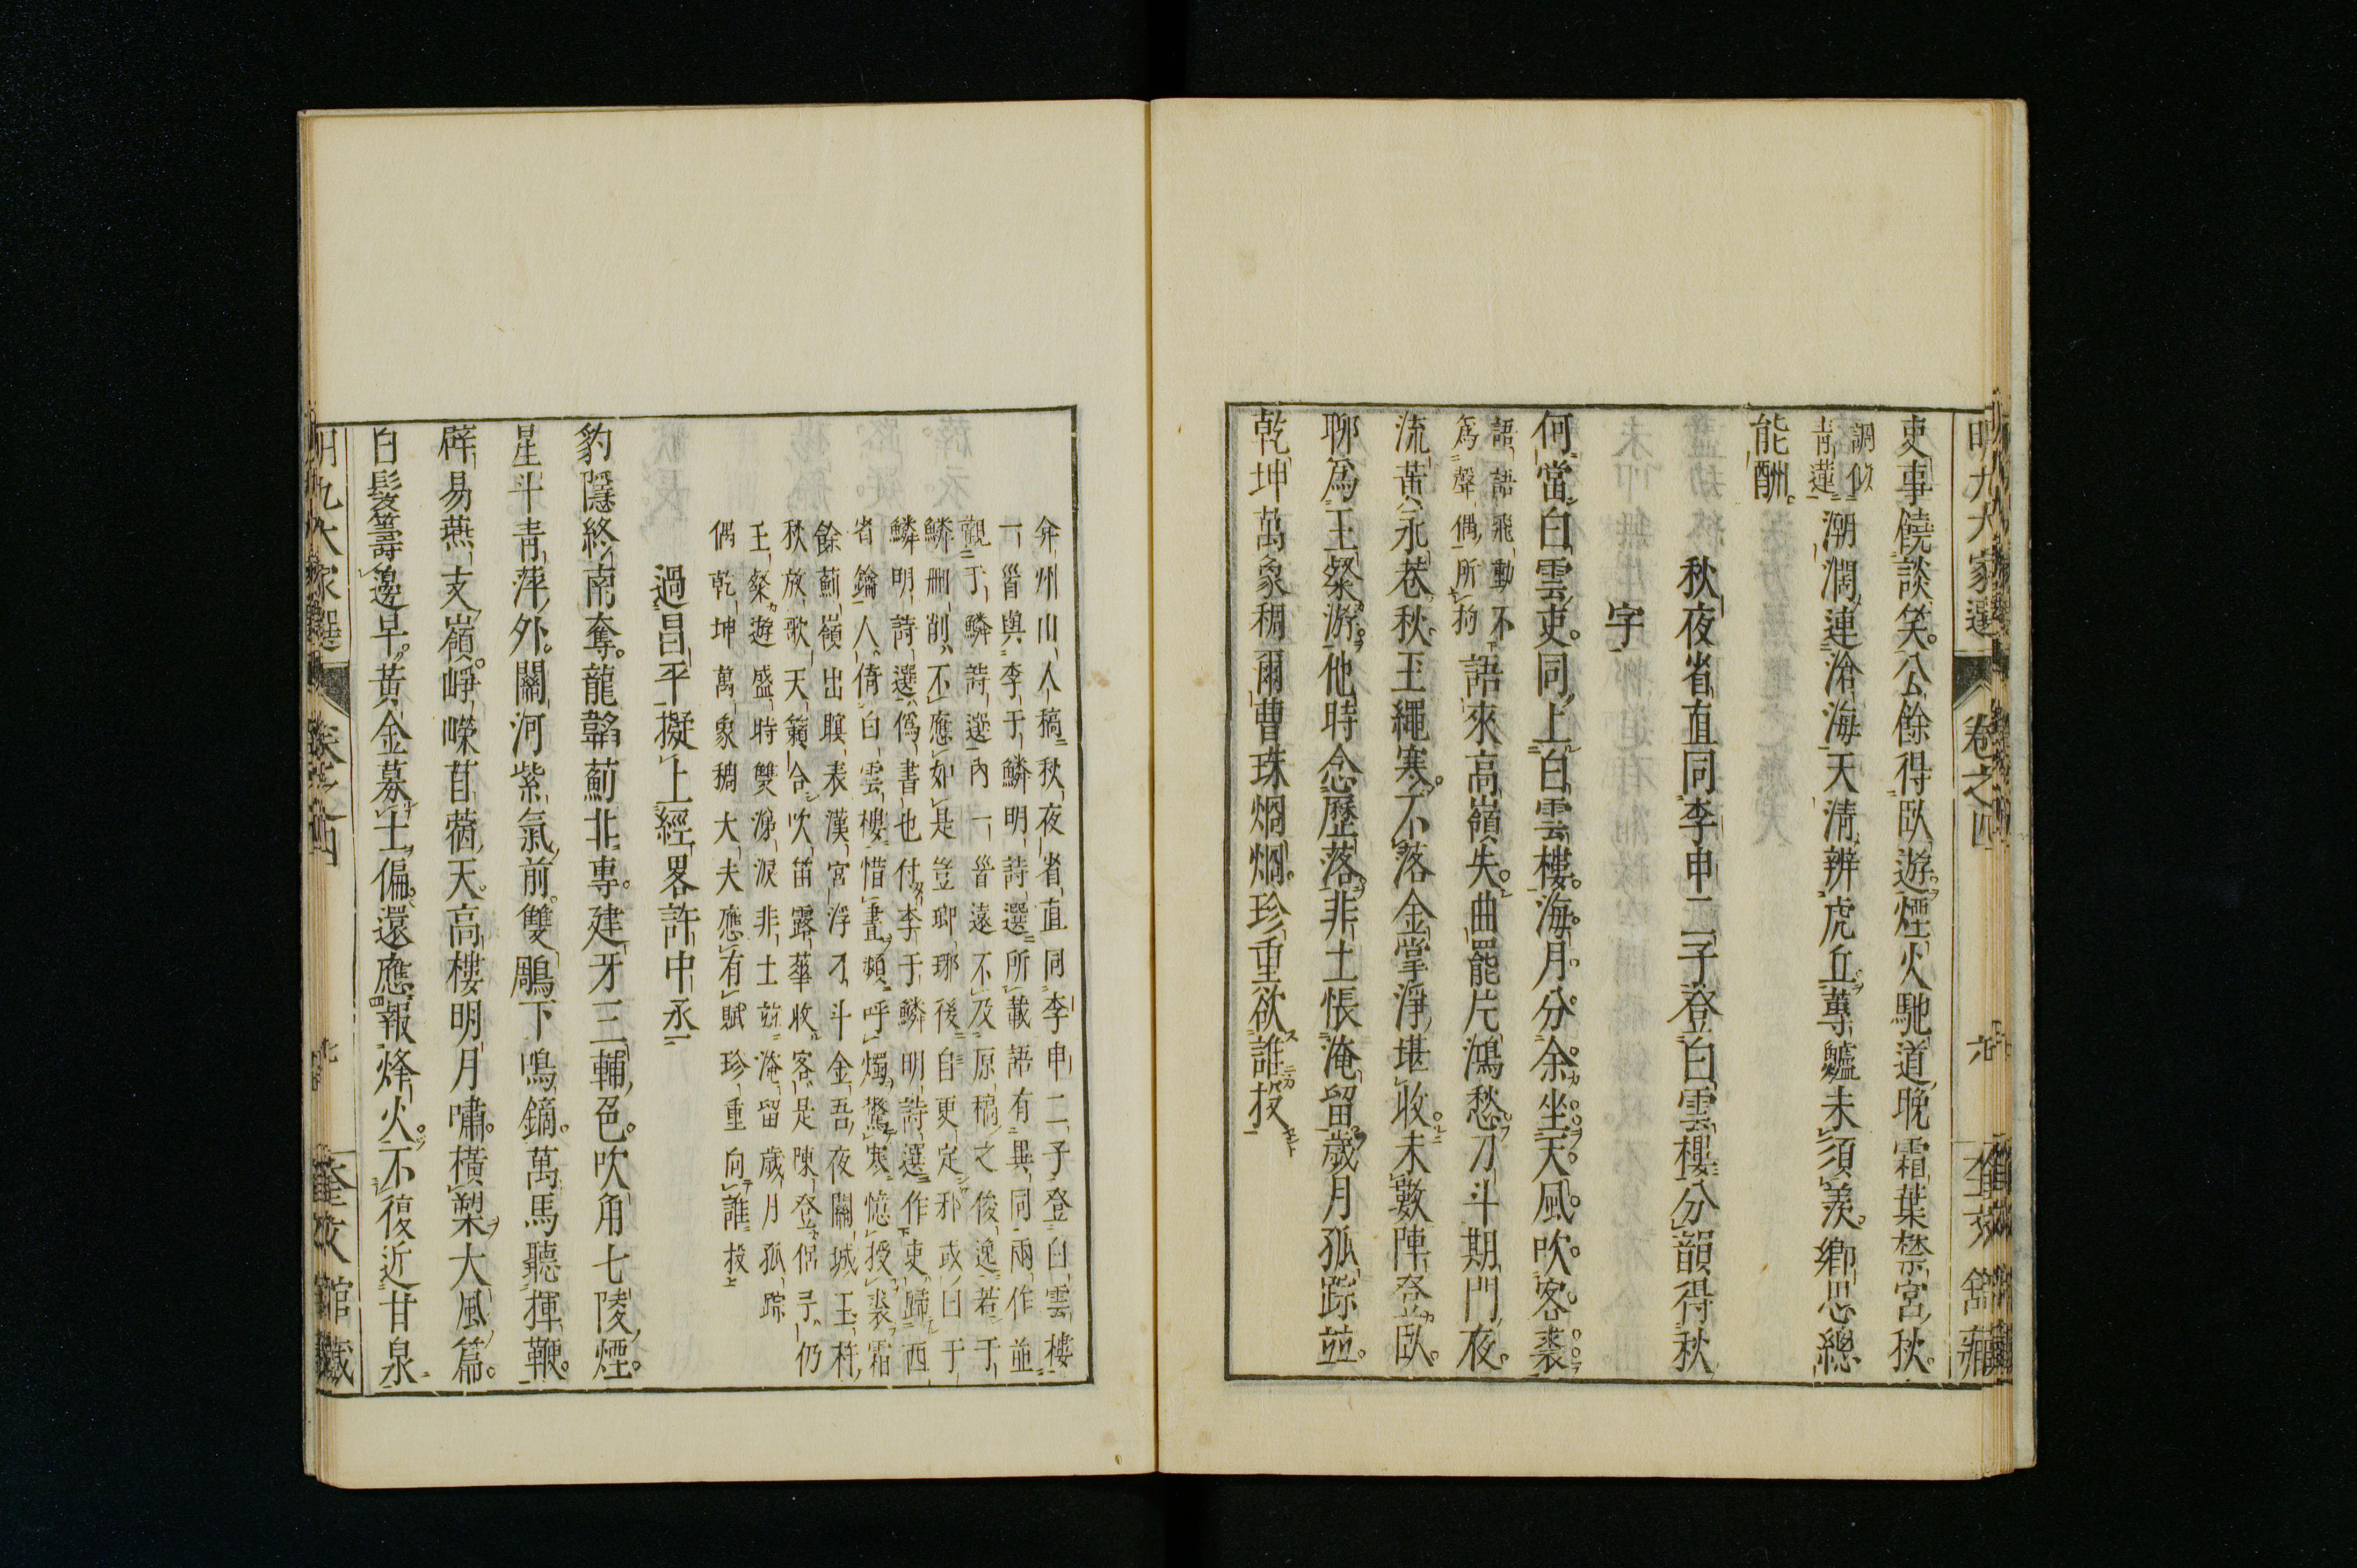 吏事饒談笑公餘得臥遊煙火馳道晚霜葉禁宮秋
調似
青蓮
潮濶連滄海天淸辨虎丘蓴鱸未須羨鄉思總
能酬
秋夜省直同李申二子登白雲樓分韻得秋
字
何當白雲吏同上白雲樓海月分余坐天風吹客裘
語語飛動不
爲聲偶所拘
語來高嶺失曲罷片鴻愁刁斗期門夜
流黃永巷秋玉繩寒不落金掌淨堪收未數陣登臥
聊爲王粲游他時念歷落非土悵淹留歲月孤踪並
乾坤萬象稠爾曹珠烱烱珍重欲誰投
明九大家選
卷之四
奎文館藏
弇州山人稿秋夜省直同李申二子登白雲樓
一首與李于鱗明詩選所載語有異同兩作並
觀于鱗詩選內一首遠不及原稿之後逸若于
鱗刪削不應如是豈瑯琊後自更定邪或曰于
鱗明詩選僞書也付李于鱗明詩選作吏歸西
省鑰人倚白雲樓惜晝頻呼燭驚寒憶授裘霜
餘薊嶺出瞑表漢宮浮刁斗金吾夜關城玉柝
秋放歌天籟合吹笛露華收客是陳登侶予仍
王粲遊盛時雙涕淚非土玆淹留歲月孤踪
偶乾坤萬象稠大夫應有賦珍重向誰投
過昌平擬上經畧許中丞
豹隱終南奪龍韜薊北專建牙三輔色吹角七陵煙
星斗靑萍外關河紫氣前雙鵰下鳴鏑萬馬聽揮鞭
辟易燕支嶺崢嶸苜蓿天高樓明月嘯橫槊大風篇
白髮籌邊早黃金募士偏還應報烽火不復近甘泉
明九大家選
卷之四
奎文館藏